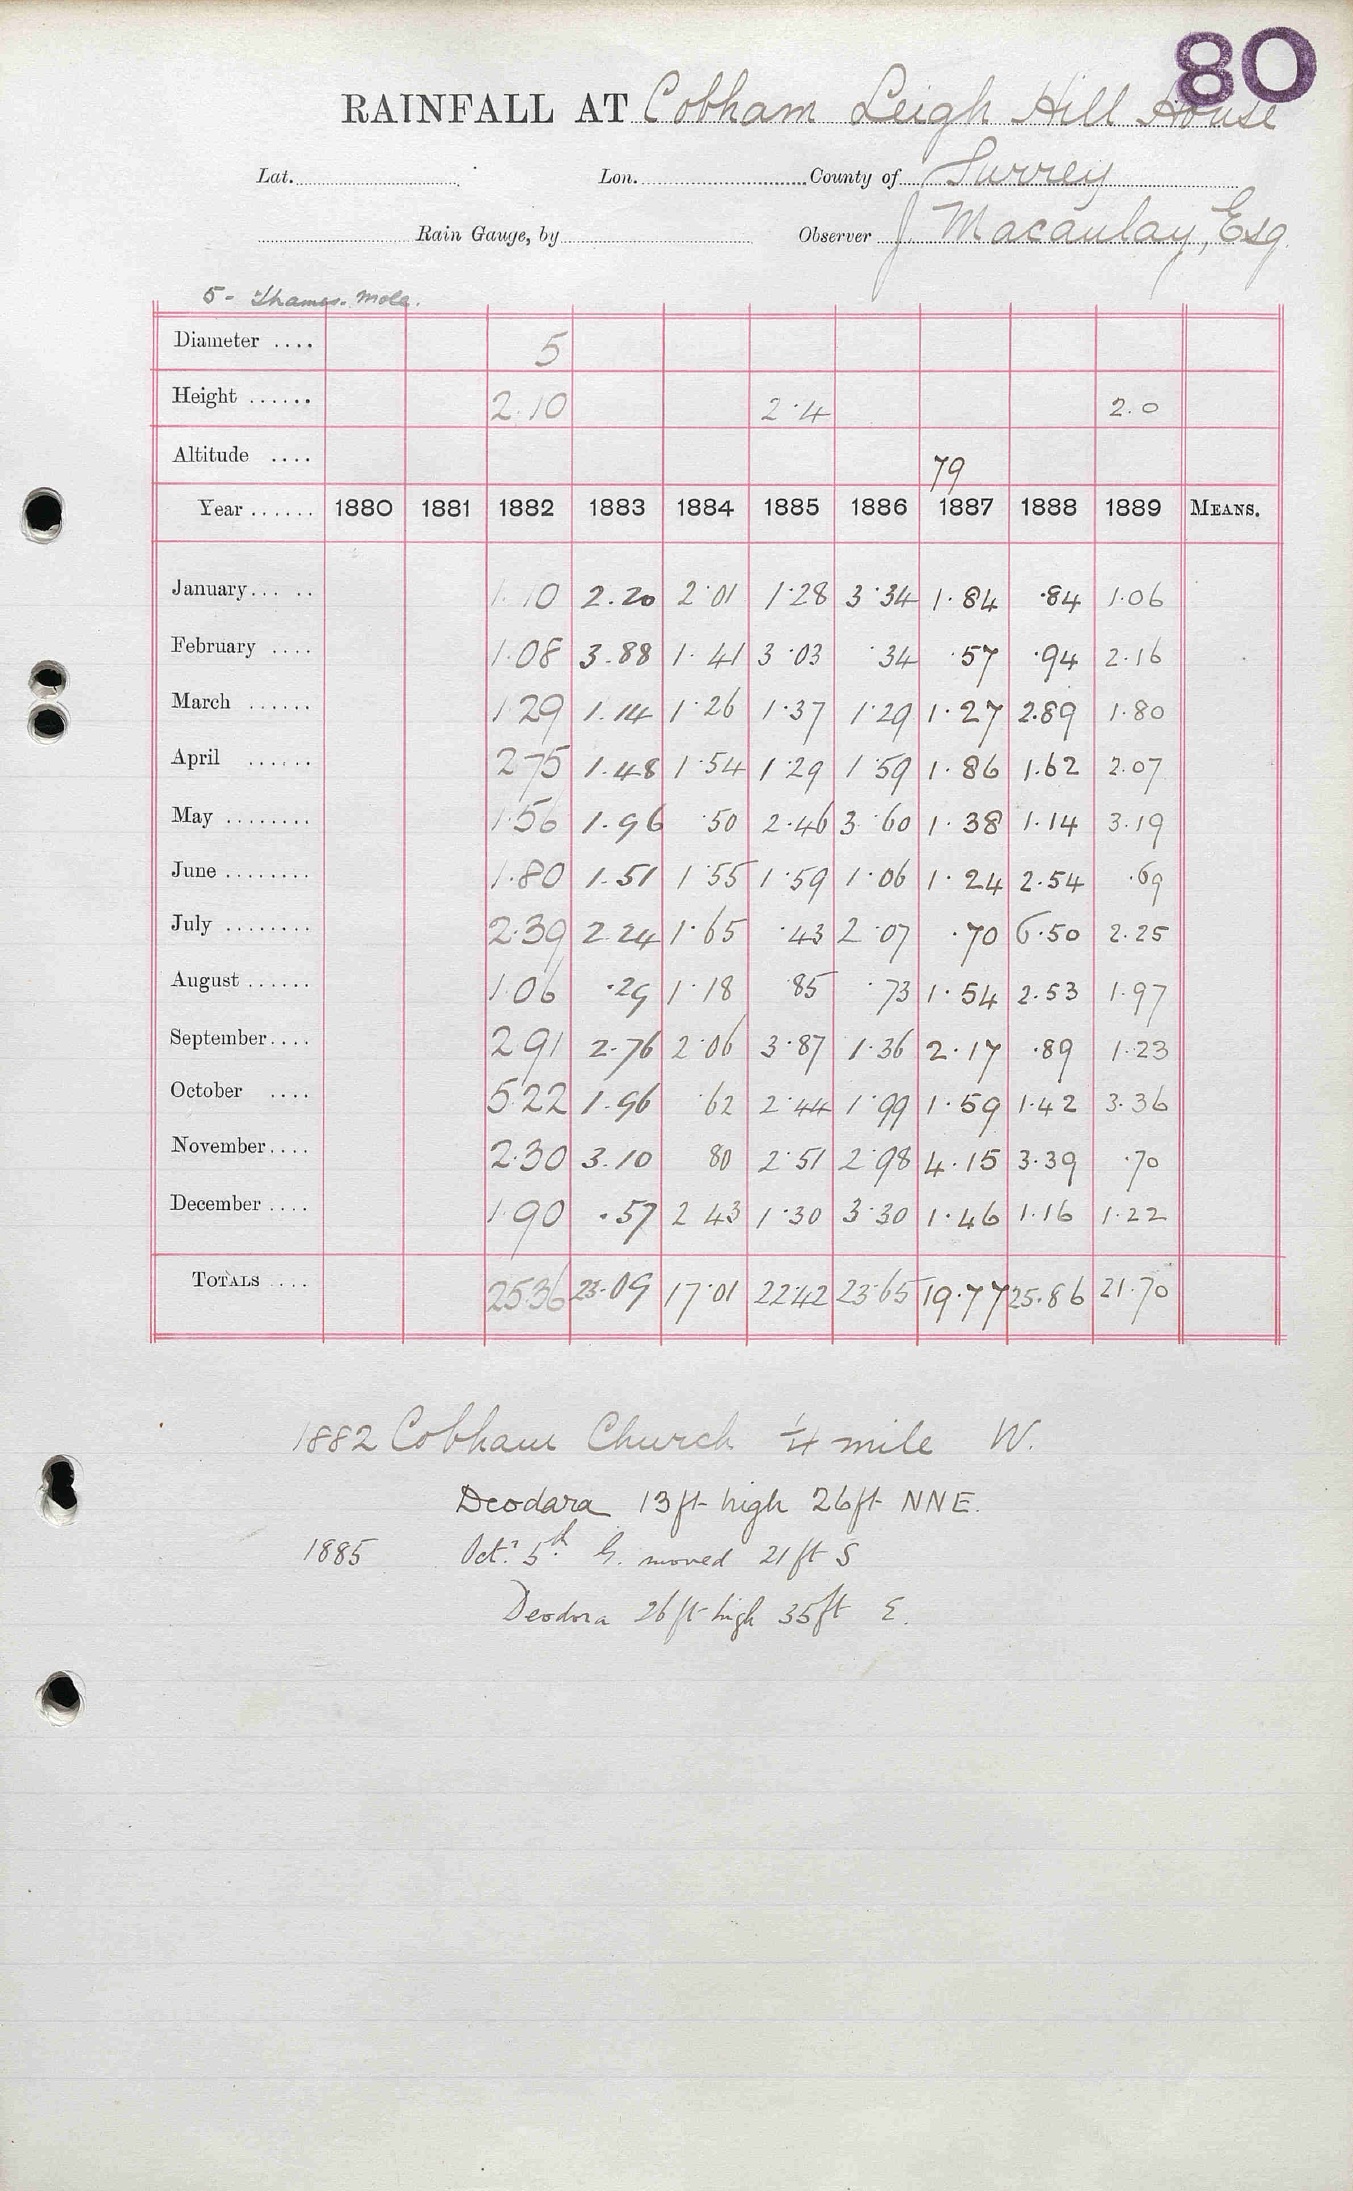 80
RAINFALL AT Cobham Leigh Hill House
Lat. Lon. County of Surrey
Rain Gauge, by Observer J Macaulay, Esq
5 - Thames. Mole.
Diameter .... 5
Height ...... 2.10 2.4 2.0
Altitude .... 79
Year ...... 1880 1881 1882 1883 1884 1885 1886 1887 1888 1889 MEANS.
January... .. 1.10 2.20 2.01 1.28 3.34 1.84 .84 1.06
February .... 1.08 3.88 1.41 3.03 .34 .57 .94 2.16
March ...... 1.29 1.14 1.26 1.37 1.29 1.27 2.89 1.80
April ...... 2.75 1.48 1.54 1.29 1.59 1.86 1.62 2.07
May ........ 1.56 1.96 .50 2.46 3.60 1.38 1.14 3.19
June ........ 1.80 1.51 1.55 1.59 1.06 1.24 2.54 .69
July ........ 2.39 2.24 1.65 .43 2.07 .70 6.50 2.25
August ...... 1.06 .29 1.18 .85 .73 1.54 2.53 1.97
September.... 2.91 2.76 2.06 3.87 1.36 2.17 .89 1.23
October .... 5.22 1.96 .62 2.44 1.99 1.59 1.42 3.36
November.... 2.30 3.10 80 2.51 2.98 4.15 3.39 .70
December .... 1.90 .57 2 43 1.30 3.30 1.46 1.16 1.22
TOTALS .... 25.36 23.09 17.01 22.42 23.65 19.77 25.86 21.70
1882 Cobham Church 1/4 mile W.
Deodara 13ft high 26ft NNE.
1885 Oct. 5th G. moved 21ft S
Deodora 26ft high 35ft E.